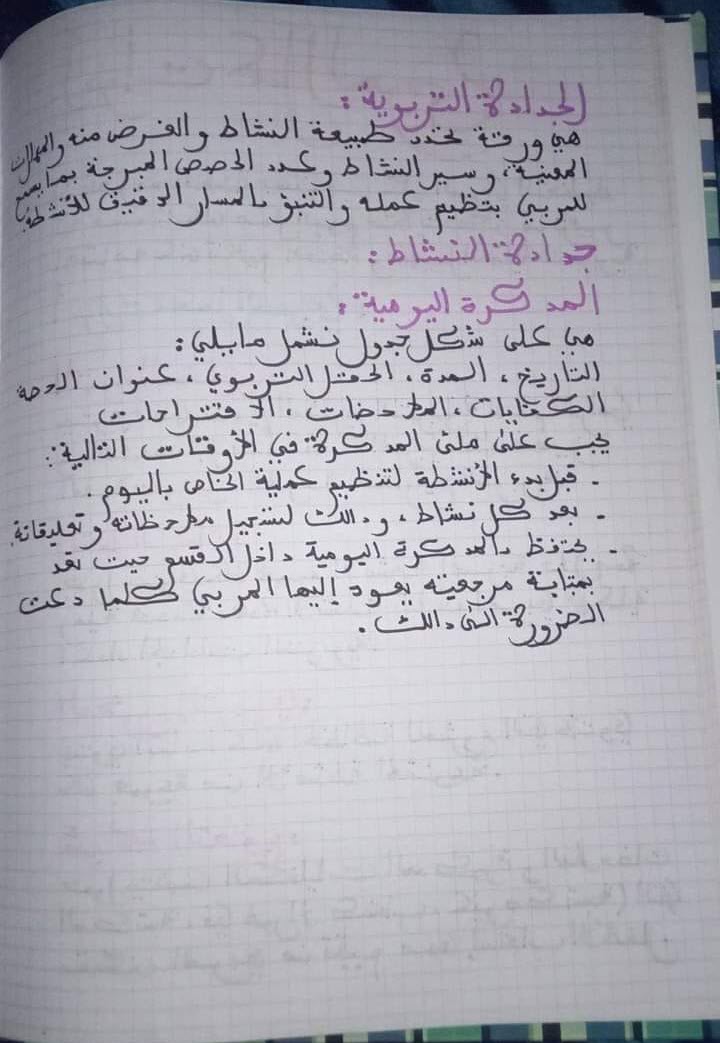 الجدادة التربوية :
هي ورقة تحدد طبيعة النشاط والغرض منه والمجالات
المعنية، وسير النشاط وعدد الحصص المبرجة بما يسمح
للمربي بتظيم عمله والتنبؤ بالمسار الدقيق للأنشطة.
جدادة النشاط :
المدكرة اليومية :
هي على شكل جدول تشمل مايلي :
التاريخ، المدة، الحقل التربوي، عنوان الوحدة
الكفايات، الملاحضات، الاقتراحات
يجب على ملئ المدكرة في الأوقات التالية :
- قبل بدء الأنشطة لتنظيم عملية الخاص باليوم.
- بعد كل نشاط، ودالك لتسجيل ملاحظاته وتعليقاته.
- يحتفظ بالمدكرة اليومية داخل القسم حيت تعد
بمتابة مرجعيته يعود إليها المربي كلما دعت
الضرورة الى دالك.